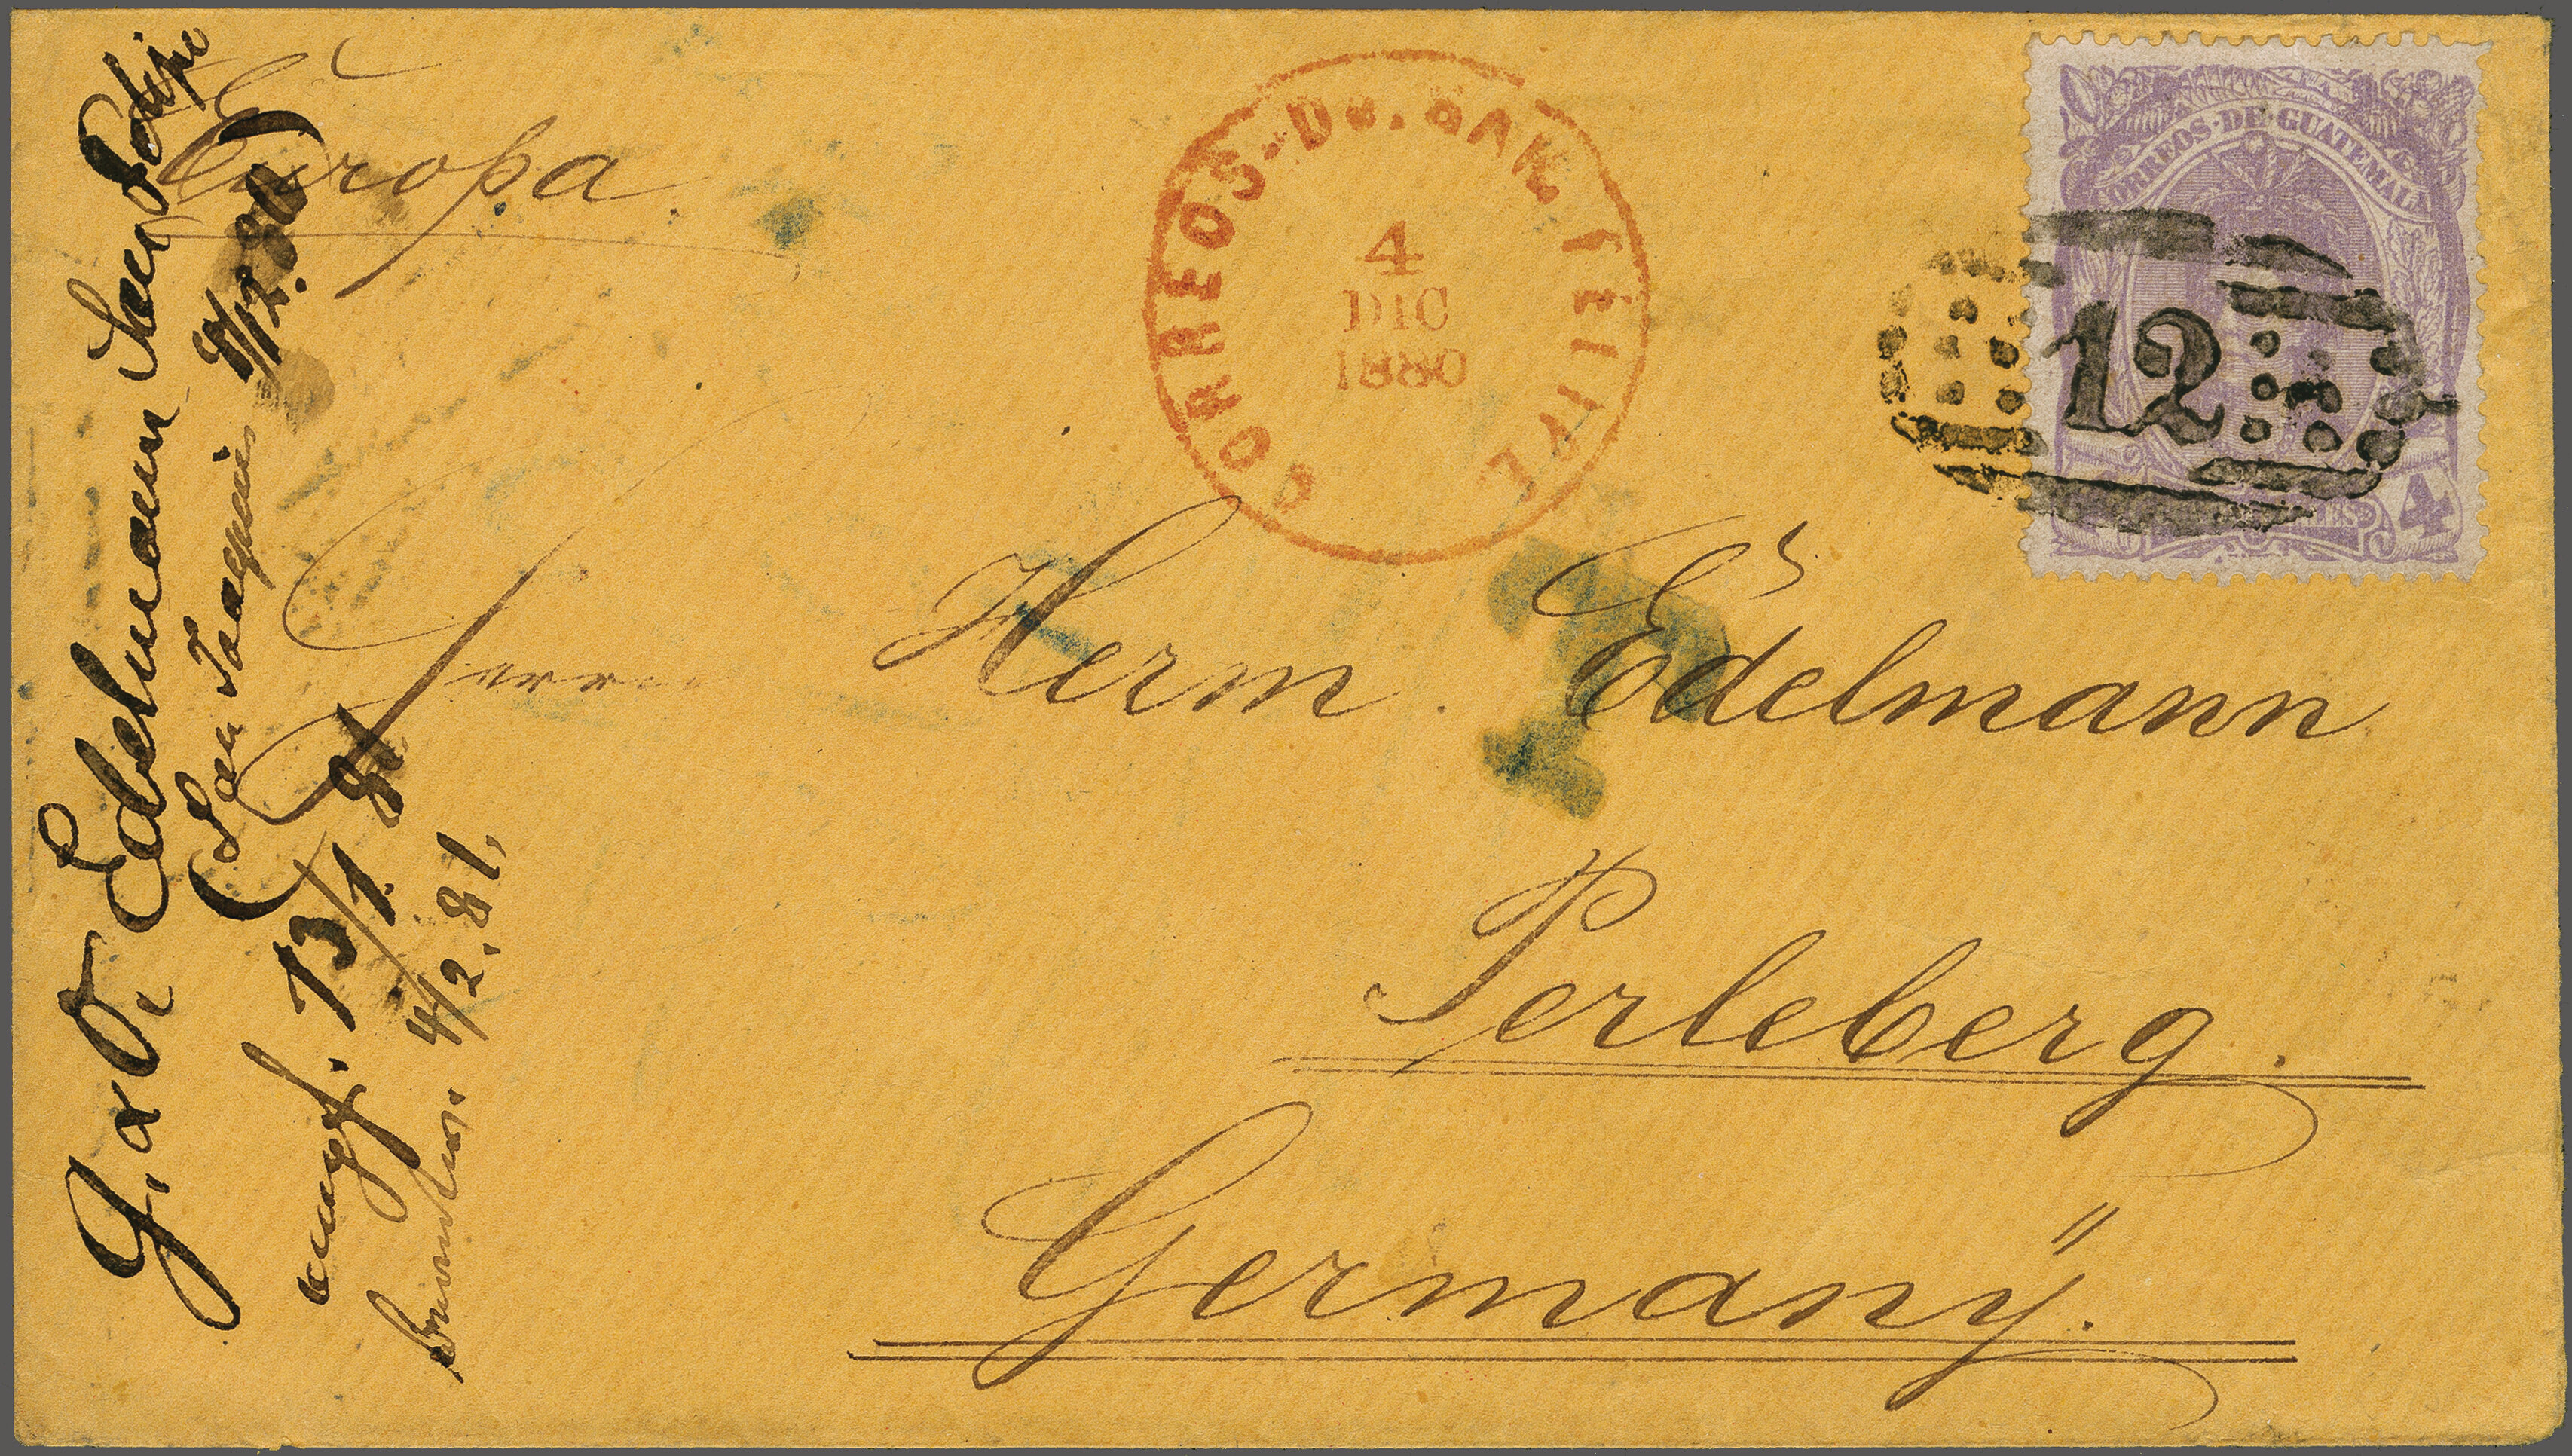 Europa.
CORREOS·DE·SAN. FELIPE
4
DIC
1880
CORREOS·DE·GUATEMALA
12
4
Herrn Herm. Edelmann
Perleberg.
Germany.
Edelmann San Felipe
(San Joaquin 9/12.80)
empf. 13/1. 81
4/2.81,